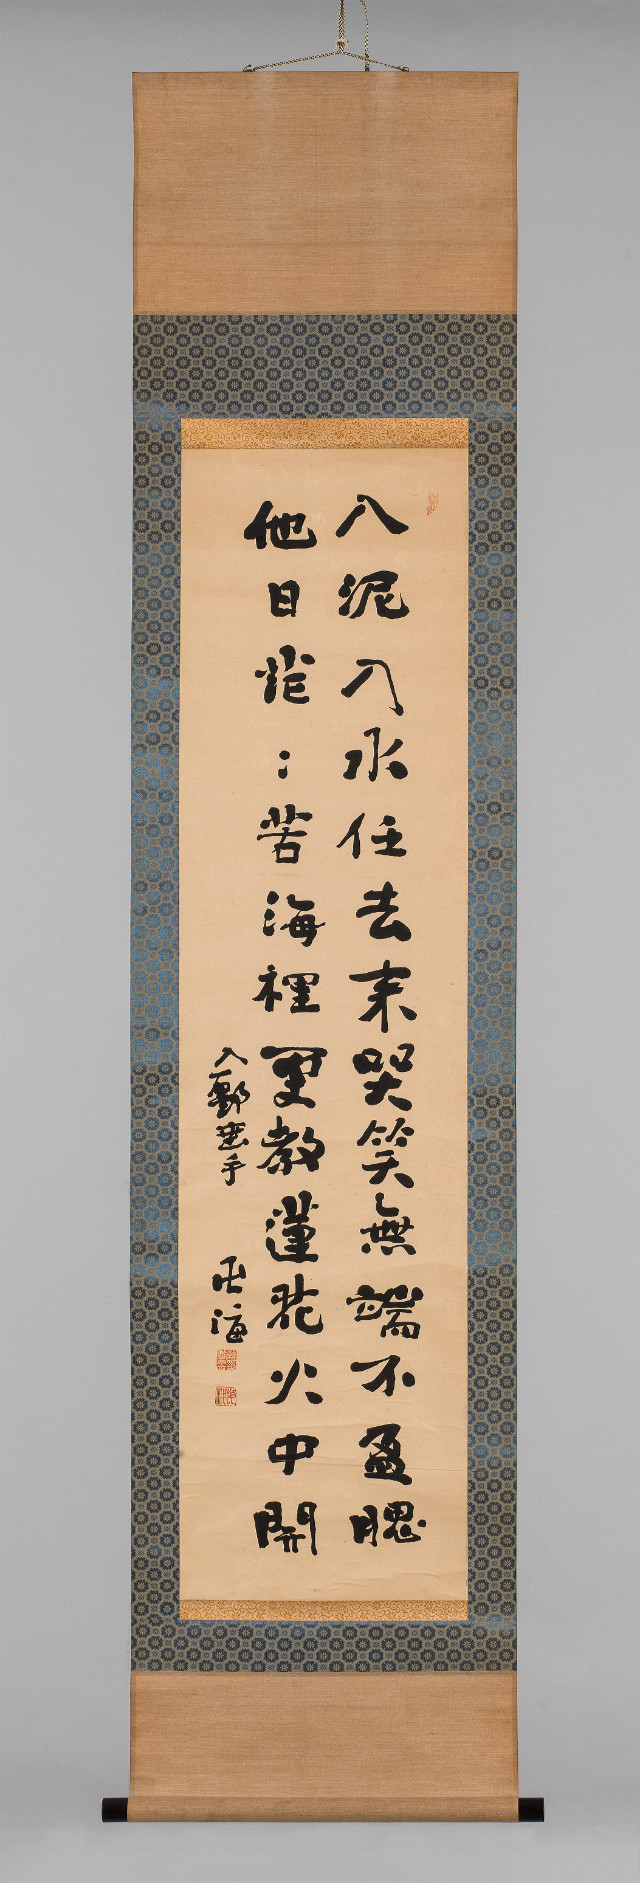 入泥入水任去来哭笑無端不盈腮
他日茫〻苦海裡更教蓮花火中開
入鄽垂手